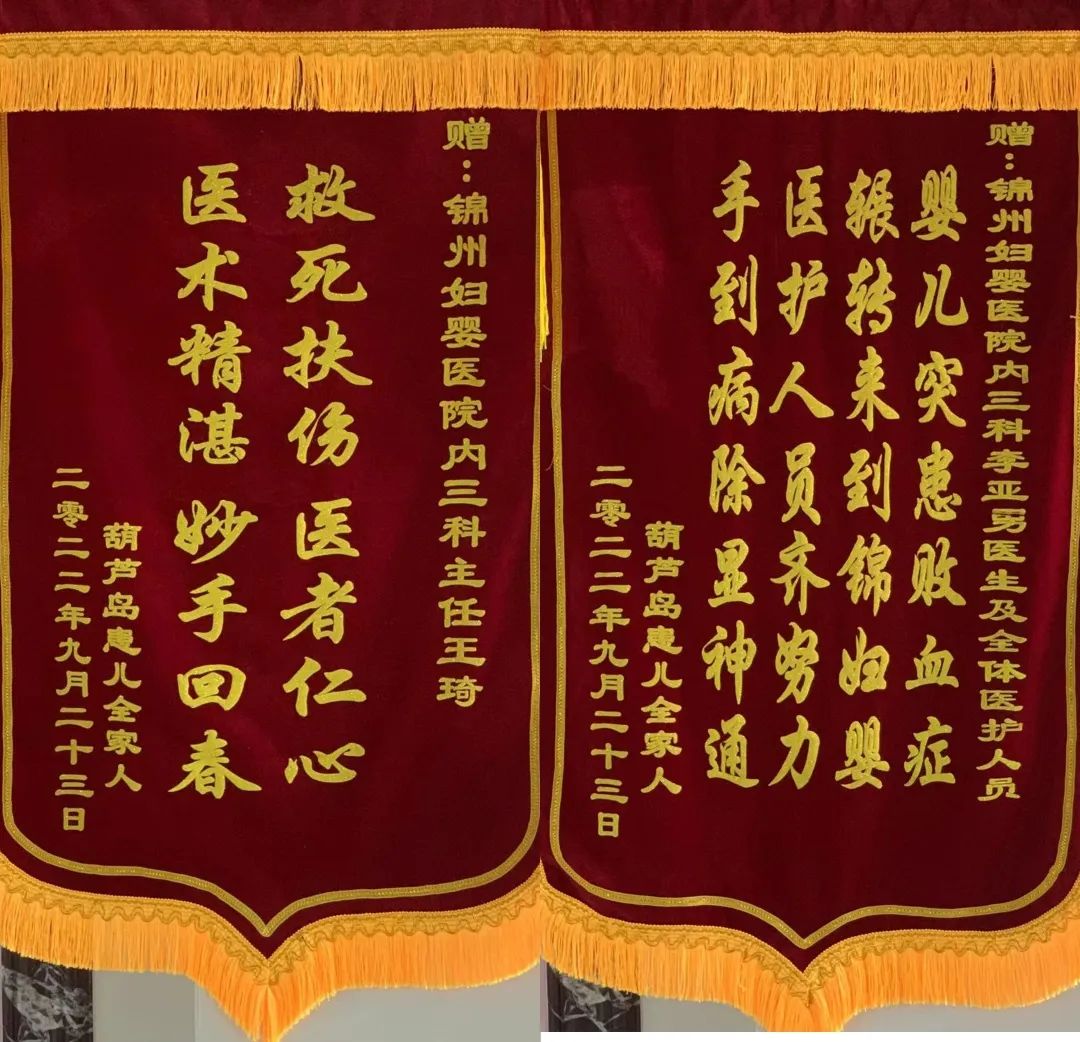 赠：锦州妇婴医院内三科主任王琦
救死扶伤 医者仁心
医术精湛 妙手回春
葫芦岛患儿全家人
二零二二年九月二十三日
赠：锦州妇婴医院内三科李亚男医生及全体医护人员
婴儿突患败血症
辗转来到锦妇婴
医护人员齐努力
手到病除显神通
葫芦岛患儿全家人
二零二二年九月二十三日